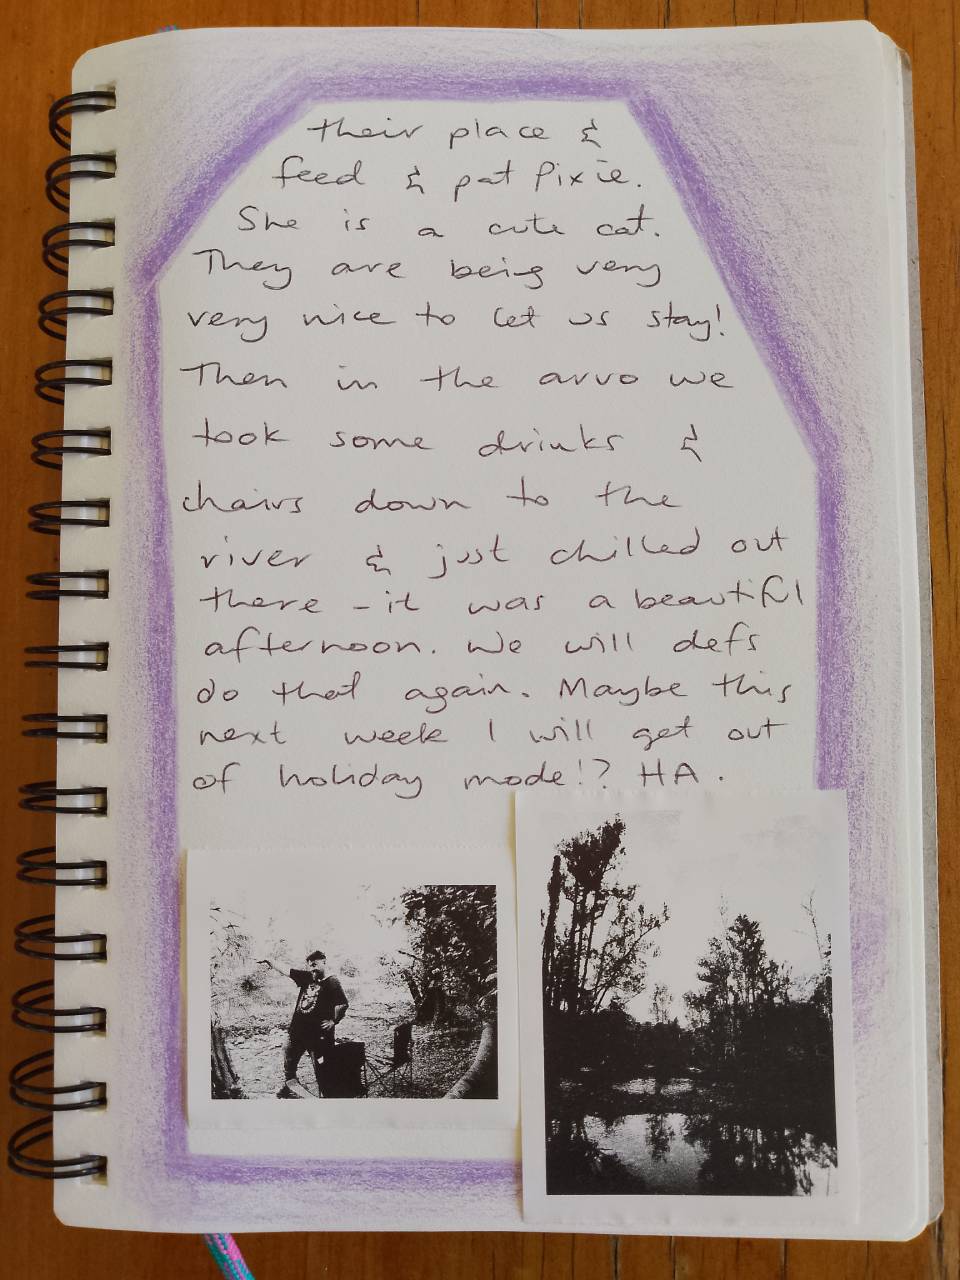 their place &
feed & pat Pixie.
She is a cute cat.
They are being very
very nice to let us stay!
Then in the arvo we
took some drinks &
chairs down to the
river & just chilled out
there - it was a beautiful
afternoon. We will defs
do that again. Maybe this
next week I will get out
of holiday mode!? HA.